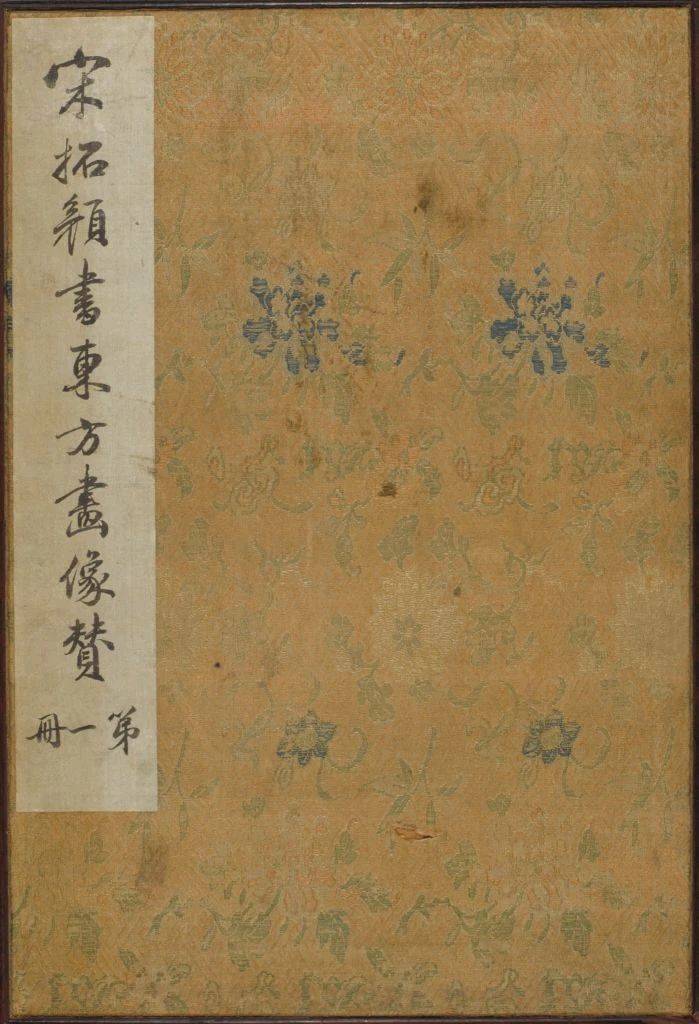 宋拓顏書東方畫像贊
第一冊